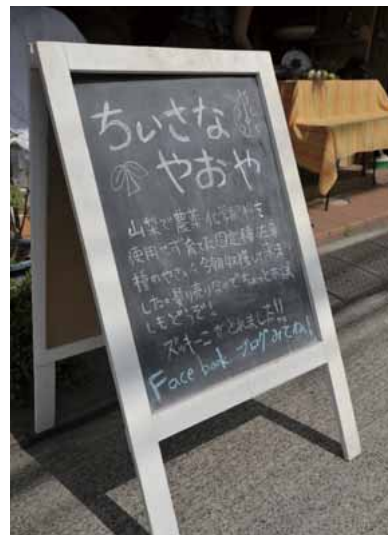 ちいさな
やおや
山梨で農薬・化学肥料を
使用せず育てた固定種・在来
種のやさい。今朝収穫して来ま
した。量り売りなのでちょっとお試
しもどうぞ!
ズッキーニがとれました!!
Facebook ブログみてね!